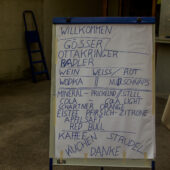 WILLKOMMEN
GÖSSER /
OTTAKRINGER
RADLER
WEIN WEISS / ROT
WODKA || NUßSCHNAPS
MINERAL - PRICKELND / STILL
COLA COLA LIGHT
SCHARTNER ORANGE
EISTEE PFIRSICH - ZITRONE
APFELSAFT
RED BULL
KAFFEE
KUCHEN STRUDEL
DANKE